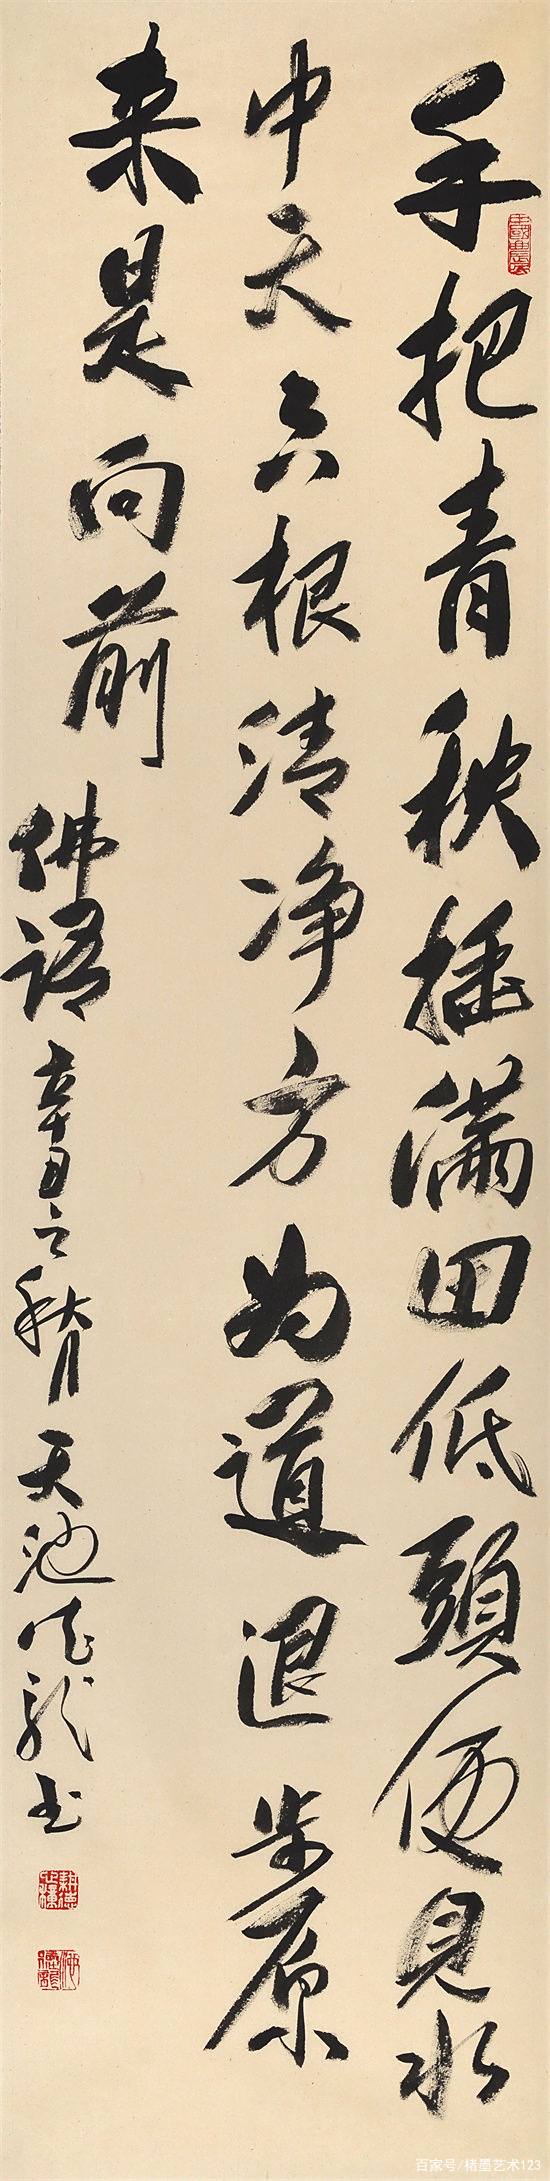 手把青秧插满田低頭便見水
中天六根清净方为道退步原
来是向前
佛语辛丑之秋月天池德龙书
百家号/楮墨艺术123